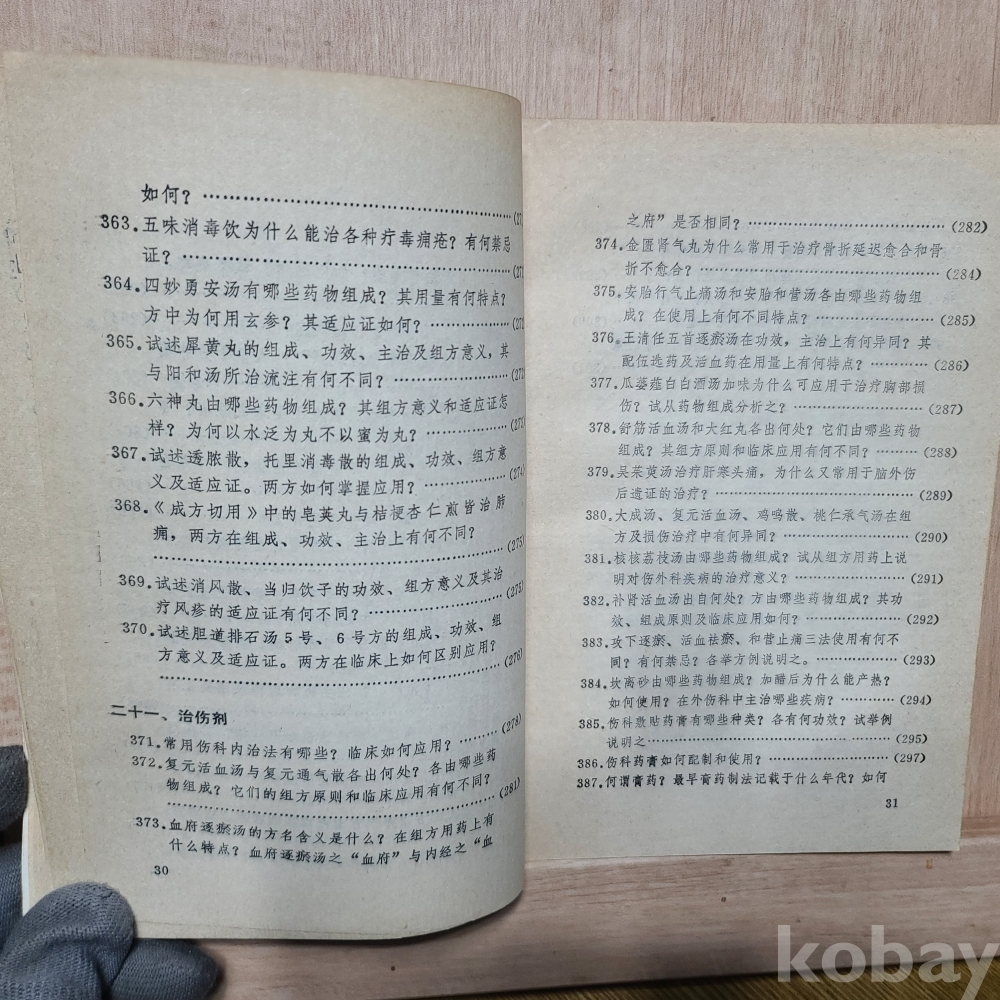 如何？……………………………………(27
363.五味消毒饮为什么能治各种疔毒痈疮？有何禁忌
证？……………………………………(27
364.四妙勇安汤有哪些药物组成？其用量有何特点？
方中为何用玄参？其适应证如何？…………(27
365.试述犀黄丸的组成、功效、主治及组方意义，其
与阳和汤所治流注有何不同？………………(272
366.六神丸由哪些药物组成？其组方意义和适应证怎
样？为何以水泛为丸不以蜜为丸？…………(273
367.试述透脓散，托里消毒散的组成、功效、组方意
义及适应证。两方如何掌握应用？…………(274
368.《成方切用》中的皂荚丸与桔梗杏仁煎皆治肺
痈，两方在组成、功效、主治上有何不同？
……………………………………(275)
369.试述消风散、当归饮子的功效、组方意义及其治
疗风疹的适应证有何不同？………………(275)
370.试述胆道排石汤5号、6号方的组成、功效、组
方意义及适应证。两方在临床上如何区别应用？
……………………………………(276)
二十一、治伤剂
371.常用伤科内治法有哪些？临床如何应用？……(278)
372.复元活血汤与复元通气散各出何处？各由哪些药
物组成？它们的组方原则和临床应用有何不同？
……………………………………(281)
373.血府逐瘀汤的方名含义是什么？在组方用药上有
什么特点？血府逐瘀汤之“血府”与内经之“血
30
之府”是否相同？……………………(282)
374.金匮肾气丸为什么常用于治疗骨折延迟愈合和骨
折不愈合？……………………………(284)
375.安胎行气止痛汤和安胎和营汤各由哪些药物组
成？在使用上有何不同特点？……………(285)
376.王清任五首逐瘀汤在功效，主治上有何异同？其
配伍选药及活血药在用量上有何特点？………(286)
377.瓜蒌薤白白酒汤加味为什么可应用于治疗胸部损
伤？试从药物组成分析之？………………(287)
378.舒筋活血汤和大红丸各出何处？它们由哪些药物
组成？其组方原则和临床应用有何不同？………(288)
379.吴茱萸汤治疗肝寒头痛，为什么又常用于脑外伤
后遗证的治疗？……………………………(289)
380.大成汤、复元活血汤、鸡鸣散、桃仁承气汤在组
方及损伤治疗中有何异同？………………(290)
381.核核荔枝汤由哪些药物组成？试从组方用药上说
明对伤外科疾病的治疗意义？……………(291)
382.补肾活血汤出自何处？方由哪些药物组成？其功
效、组成原则及临床应用如何？……………(292)
383.攻下逐瘀、活血祛瘀、和营止痛三法使用有何不
同？有何禁忌？各举方例说明之。……………(293)
384.坎离砂由哪些药物组成？加醋后为什么能产热？
如何使用？在外伤科中主治哪些疾病？………(294)
385.伤科敷贴药膏有哪些种类？各有何功效？试举例
说明之……………………………………(295)
386.伤科药膏如何配制和使用？………………(297)
387.何谓膏药？最早膏药制法记载于什么年代？如何
31
kobay